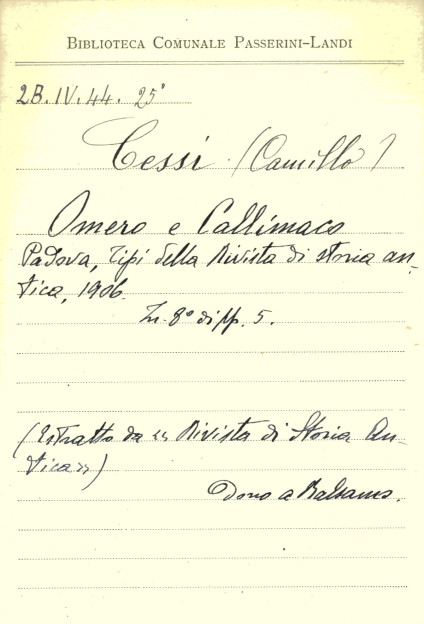 BIBLIOTECA COMUNALE PASSERINI-LANDI
2B.IV.44. 25°
Cessi (Camillo)
Omero e Callimaco
Padova, Tipi della Rivista di storia an-
tica, 1906.
In 8° di pp. 5.
(Estratto da « Rivista di Storia An-
tica »)
Dono a Balsamo.